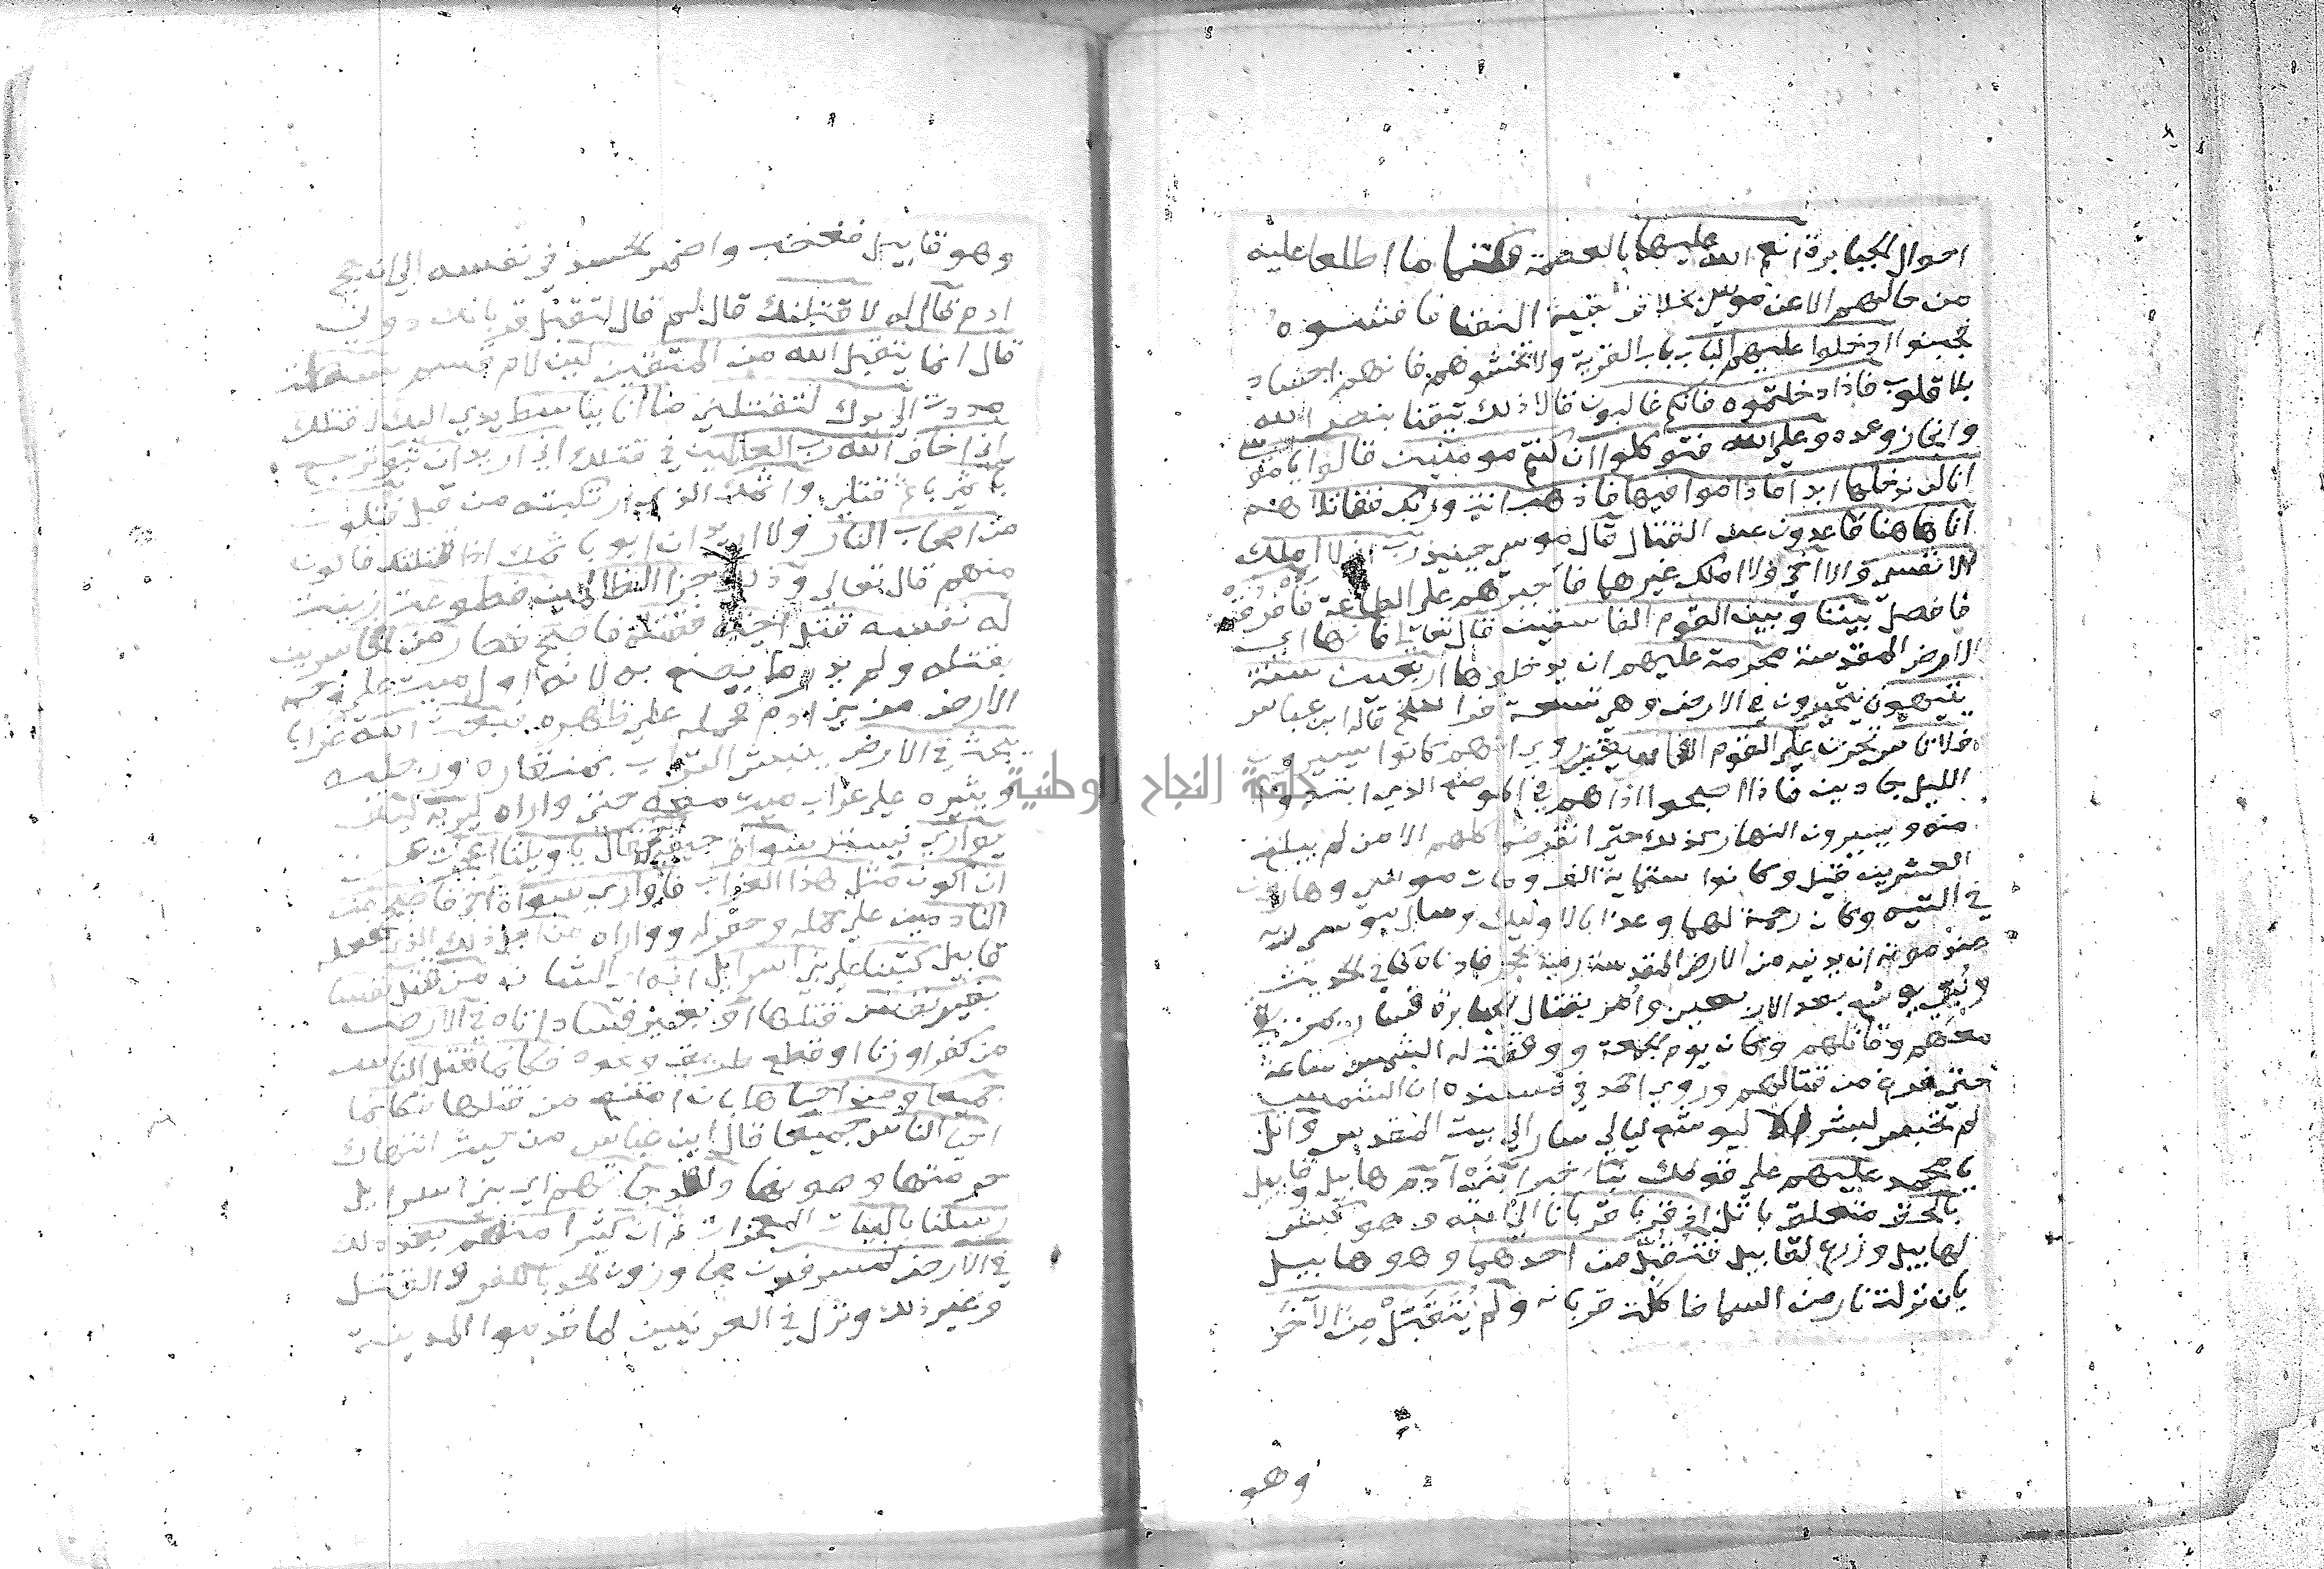 احوال الجبابرة انعم الله عليهما بالعصمة فكتما ما اطلعا عليه
من حالهم الا عن موسى بخلاف بقية النقبا فافشوه
فجبنوا ادخلوا عليهم الباب باب القرية ولا تخشوهم فانهم اجساد
بلا قلوب فاذا دخلتموه فانكم غالبون قالا ذلك تيقنا بنصر الله
وانجاز وعده وعلى الله فتوكلوا ان كنتم مومنين قالوا يا موسى
انا لن ندخلها ابدا ما داموا فيها فاذهب انت وربك فقاتلا هم
انا هاهنا قاعدون عن القتال قال موسى حينيذ رب اني لا املك
الا نفسي والا اخي ولا املك غيرهما فاجبرهم على الطاعة فافرق
فافصل بيننا وبين القوم الفاسقين قال تعالى فانها اي
الارض المقدسة محرمة عليهم ان يدخلوها اربعين سنة
يتيهون يتحيرون في الارض وهي تسعة فراسخ قاله ابن عباس
فلا تاس تحزن على القوم الفاسقين روي انهم كانوا يسيرون
الليل جادين فاذا اصبحوا اذا هم في الموضع الذي ابتدوا
منه ويسيرون النهار كذلك حتى انقرضوا كلهم الا من لم يبلغ
العشرين قيل وكانوا ستماية الف ومات موسى وهارون
في التيه وكان رحمة لهما وعذابا لاوليك وسال موسى ربه
عند موته ان يدنيه من الارض المقدسة رمية بحجر فادناه كما في الحديث
ونبي يوشع بعد الاربعين وامر بقتال الجبابرة فسار بمن بقي
معهم وقاتلهم وكان يوم الجمعة ووقفت له الشمس ساعة
حتى فرغ من قتالهم وروى احمد في مسنده ان الشمس
لم تحبس لبشر الا ليوشع ليالي سار الى بيت المقدس واتل
يا محمد عليهم على قومك نبا خبر ابني آدم هابيل وقابيل
بالحق متعلق باتل اذ قربا قربانا الى الله وهو كبش
لهابيل وزرع لقابيل فتقبل من احدهما وهو هابيل
بان نزلت نار من السما فاكلت قربانه ولم يتقبل من الآخر
وهو
وهو قابيل فغضب واضمر الحسد في نفسه الى ان حج
ادم قال له لاقتلنك قال لم قال لتقبل قربانك دوني
قال انما يتقبل الله من المتقين لين لام قسم بسطت
مددت الي يدك لتقتلني ما انا بباسط يدي اليك لاقتلك
اني اخاف الله رب العالمين في قتلك اني اريد ان تبو ترجع
باثمي باثم قتلي واثمك الذي ارتكبته من قبل فتكون
من اصحاب النار ولا اريد ان ابو باثمك اذا قتلتك فاكون
منهم قال تعالى وذلك جزا الظالمين فطوعت زينت
له نفسه قتل اخيه فقتله فاصبح فصار من الخاسرين
بقتله ولم يدر ما يصنع به لانه اول ميت على وجه
الارض من بني ادم فحمله على ظهره فبعث الله غرابا
يبحث في الارض ينبش التراب بمنقاره ورجليه
ويثيره على غراب ميت معه حتى واراه ليريه كيف
يواري يستر سواة جيفة اخيه قال يا ويلتا اعجزت عن
ان اكون مثل هذا الغراب فاواري سواة اخي فاصبح من
النادمين على حمله وحفر له وواراه من اجل ذلك الذي فعله
قابيل كتبنا على بني اسرايل انه اي الشان من قتل نفسا
بغير نفس قتلها او بغير فساد اتاه في الارض
من كفر او زنا او قطع طريق ونحوه فكانما قتل الناس
جميعا ومن احياها بان امتنع من قتلها فكانما
احيا الناس جميعا قال ابن عباس من حيث انتهاك
حرمتها وصونها ولقد جاتهم اي بني اسرايل
رسلنا بالبينات المعجزات ثم ان كثيرا منهم بعد ذلك
في الارض لمسرفون مجاوزون الحد بالكفر والقتل
وغير ذلك ونزل في العرنيين لما قدموا المدينة
جامعة النجاح الوطنية